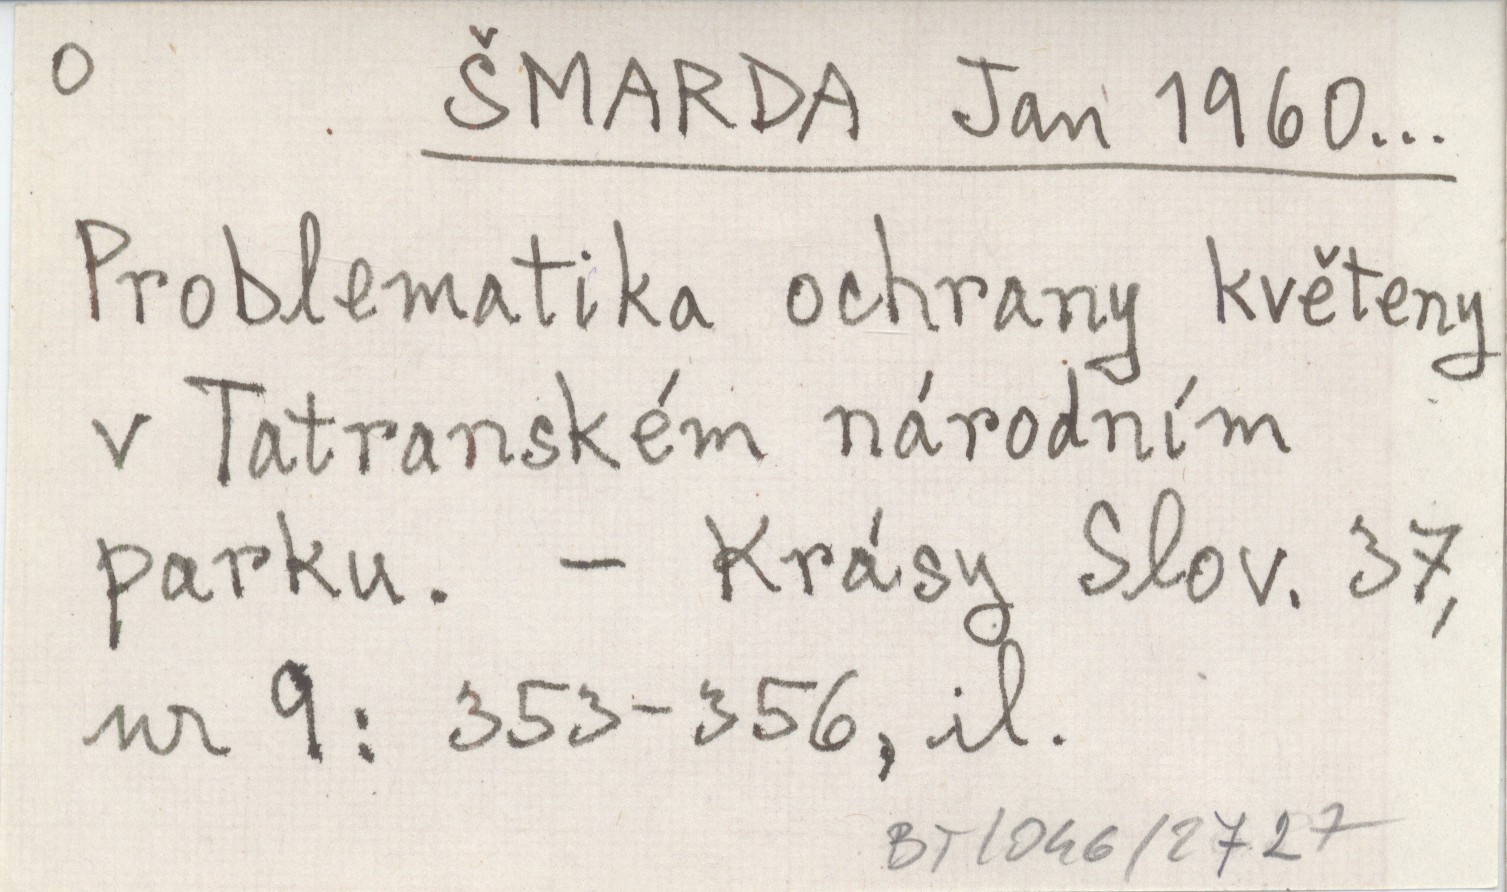 O
ŠMARDA Jan 1960...
Problematika ochrany květeny
v Tatranském národním
parku. - Krásy Slov. 37,
nr 9: 353-356, il.
BT/046/2727